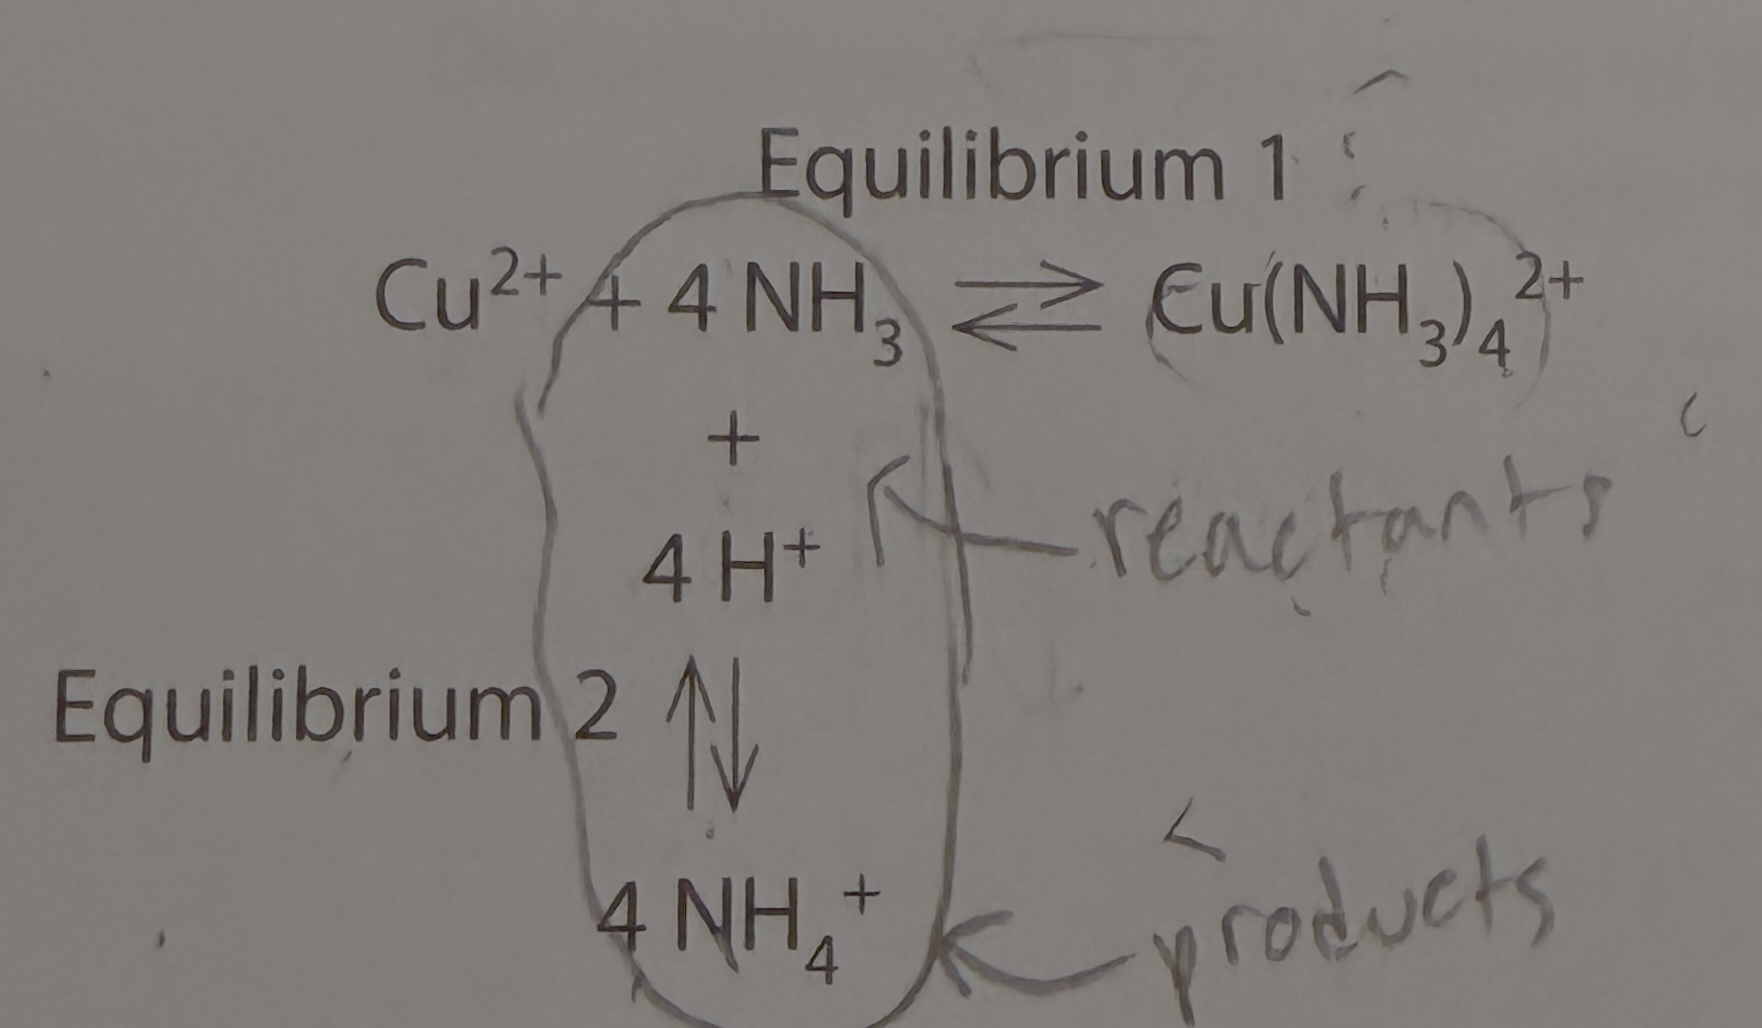 Equilibrium 1
Cu²⁺ + 4 NH₃ ⇌ Cu(NH₃)₄²⁺
+
reactants
4 H⁺
Equilibrium 2 ⇅
4 NH₄⁺
products